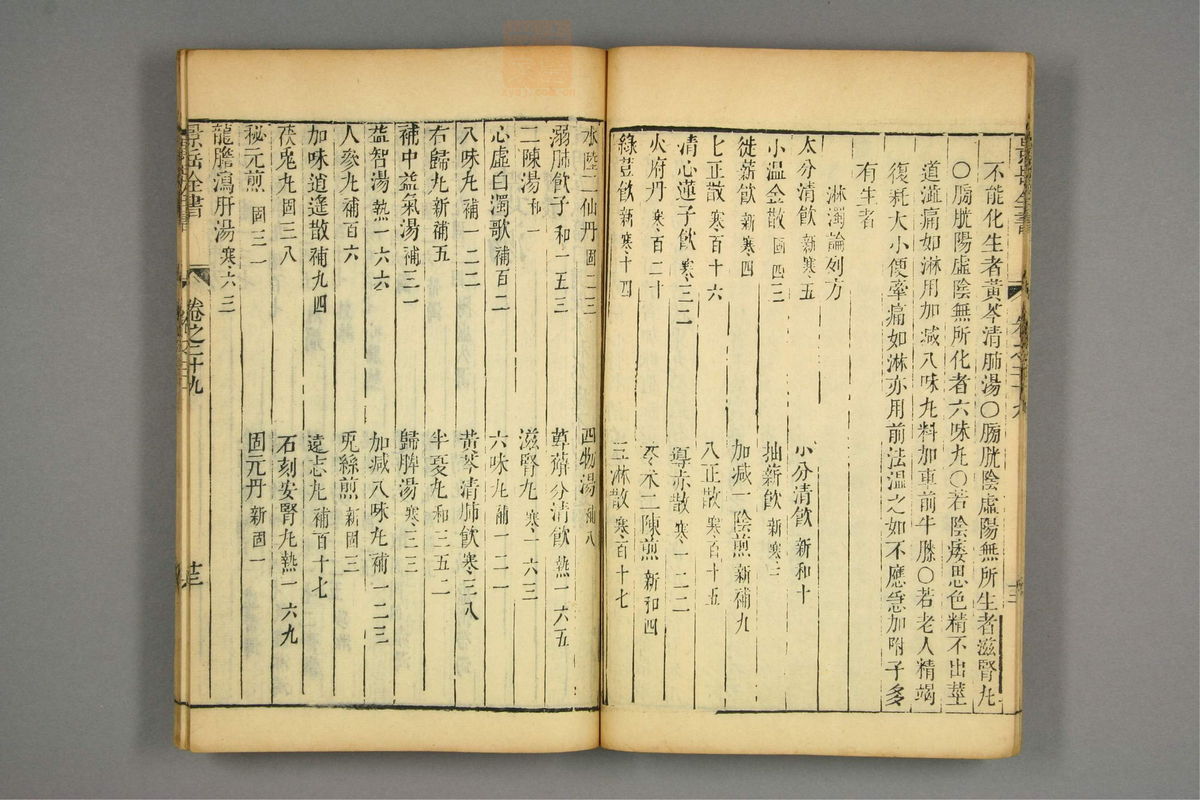 不能化生者黃芩清肺湯○膀胱陰虛陽無所生者滋腎丸
○膀胱陽虛陰無所化者六味丸○若陰痿思色精不出莖
道澁痛如淋用加減八味丸料加車前牛膝○若老人精竭
復耗大小便牽痛如淋亦用前法溫之如不應急加附子多
有生者
淋濁論列方
太分清飲 新寒五 小分清飲 新和十
小溫金散 固四三 抽薪飲 新寒三
徙薪飲 新寒四 加減一陰煎 新補九
七正散 寒百十六 八正散 寒百十五
清心蓮子飲 寒三二 導赤散 寒一二二
火府丹 寒百二十 苓朮二陳煎 新和四
綠荳飲 新寒十四 三淋散 寒百十七
水陸二仙丹 固二三 四物湯 補八
溺肺飲子 和一五三 萆薢分清飲 熱一六五
二陳湯 和一 滋腎丸 寒一六三
心虛白濁歌 補百二 六味丸 補一二一
八味丸 補一二二 黃芩清肺飲 寒三八
右歸丸 新補五 半夏丸 和三五二
補中益氣湯 補三一 歸脾湯 寒三三
益智湯 熱一六六 加減八味丸 補一二三
人參丸 補百六 兎絲煎 新固三
加味逍遙散 補九四 遠志丸 補百十七
茯兎丸 固三八 石刻安腎丸 熱一六九
秘元煎 固三一 固元丹 新固一
龍膽瀉肝湯 寒六三
景岳全書 卷之二十九 廿三